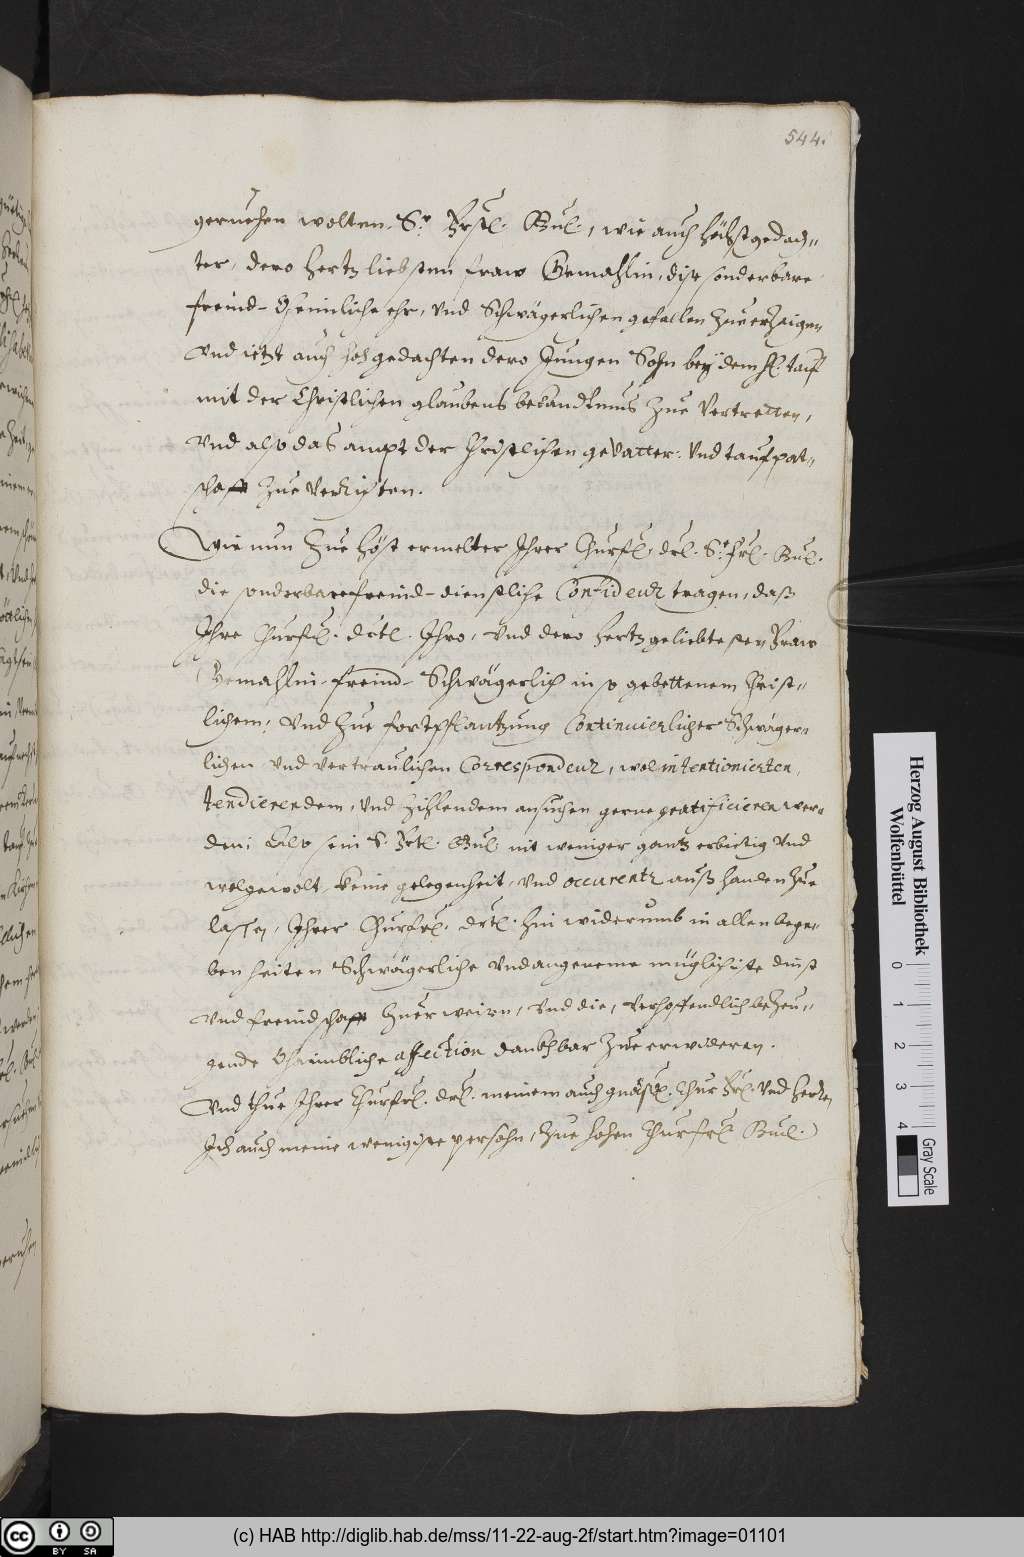 544.
geruehen wolten, Sr Frstl. Gnl., wie auch höchstgedach„
ter, dero hertzliebsten fraw Gemahlin, dise sonderbare
freind- Oheimliche ehr, vnd Schwägerlichen gefallen zuerzaigen
vnd ietzt auch hochgedachten dero Jungen Sohn bey dem H. tauf
mit der Christlichen glaubens bekandtnus zue vertretten,
vnd also das ampt der Christlichen gevatter: vnd taufpat„
schafft zue verrichten.
Wie nun zue höchst ermelter Ihrer Churfl. drl. Sr frl. Gnl.
die sonderbare freind-dienstliche Confidenz tragen, daß
Ihre Churfl. drtl. Ihro, vnd dero hertzgeliebtesten Fraw
Gemahlin freind- Schwägerlich in so gebettenem Christ„
lichem, vnd zue fortpflantzung Continuierlicher Schwäger„
lichen vnd vertraulichen Correspondenz, wol intentionierten,
tendierendem, vnd zihlendem ansuchen gerne gratificieren wer„
den; Also sein S. Frtl. Gnl. nit weniger gantz erbietig vnd
wolgewolt, keine gelegenheit, vnd occurentz auß handen zue
lassen, Ihrer Churfrl. drtl. hin widerumb in allen bege„
benheiten Schwägerliche vnd angeneme müglichiste dinst
vnd freindschafft zuerweisn, vnd die, verhoffendlich bezeu„
gende Ohaimbliche affection danckhbar zue erwideren.
Vnd thue Ihrer Churfrl. drl. meinem auch gnästl. Chur Frl. vnd Herrn
Ich auch meine wenigiste persohn, zue hohen Churfrl. Gnl.
Herzog August Bibliothek
Wolfenbüttel
0 1 2 3 4
Gray Scale
cc BY SA
(c) HAB http://diglib.hab.de/mss/11-22-aug-2f/start.htm?image=01101